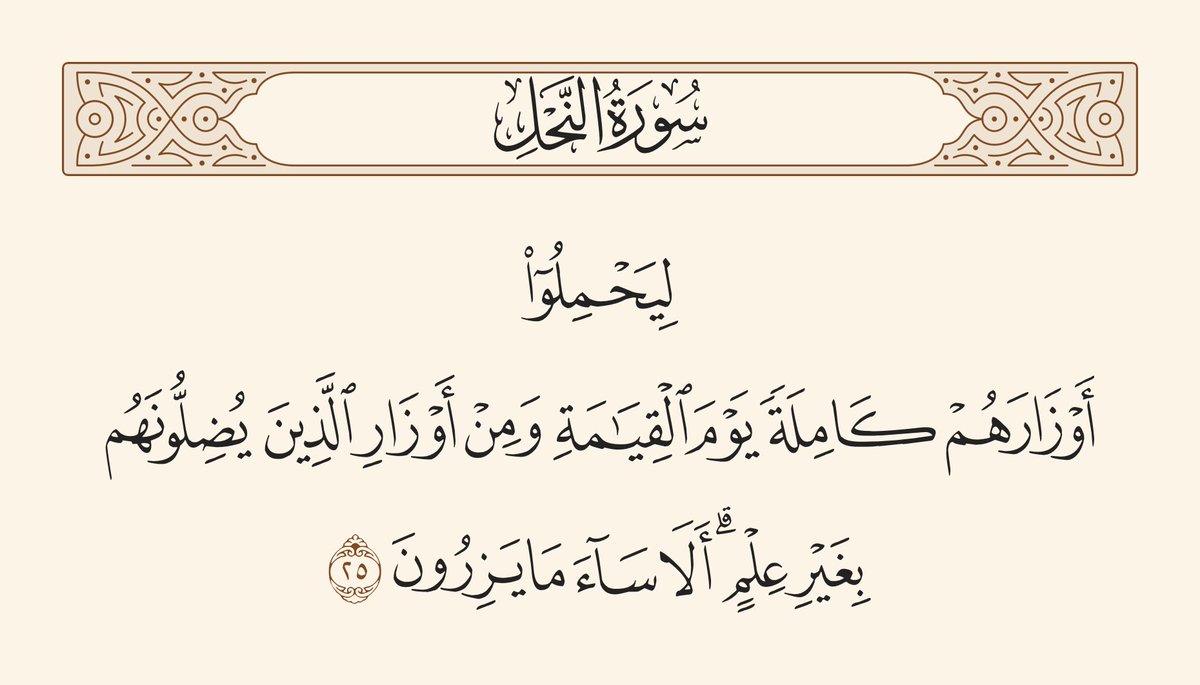 سُورَةُ النَّحْلِ
لِيَحْمِلُوٓا۟
أَوْزَارَهُمْ كَامِلَةً يَوْمَ ٱلْقِيَـٰمَةِ وَمِنْ أَوْزَارِ ٱلَّذِينَ يُضِلُّونَهُم
بِغَيْرِ عِلْمٍ ۗ أَلَا سَآءَ مَا يَزِرُونَ ٢٥